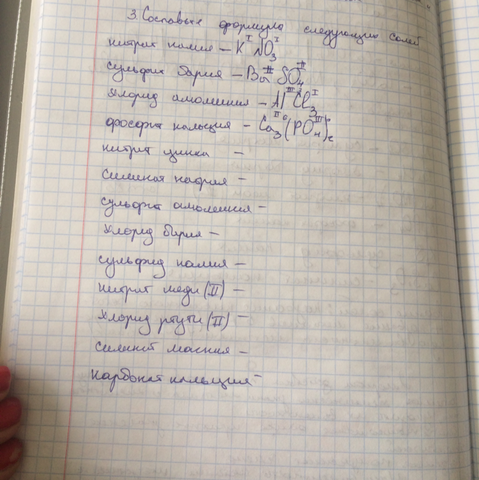 3. Составьте формулы следующих солей
нитрат калия - K^I NO₃^I
сульфат бария - Ba^II SO₄^II
хлорид алюминия - Al^III Cl₃^I
фосфат кальция - Ca₃^II (PO₄^III)₂
нитрат цинка -
силикат натрия -
сульфат алюминия -
хлорид бария -
сульфид калия -
нитрат меди (II) -
хлорид ртути (II) -
силикат магния -
карбонат кальция -